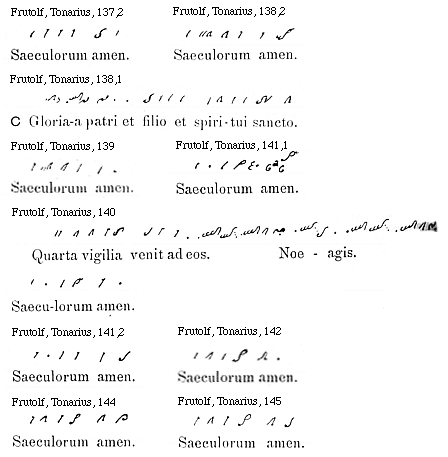 Frutolf, Tonarius, 137,2 Frutolf, Tonarius, 138,2
Saeculorum amen. Saeculorum amen.
Frutolf, Tonarius, 138,1
C Gloria-a patri et filio et spiri-tui sancto.
Frutolf, Tonarius, 139 Frutolf, Tonarius, 141,1
Saeculorum amen. Saeculorum amen.
Frutolf, Tonarius, 140
Quarta vigilia venit ad eos. Noe - agis.
Saecu-lorum amen.
Frutolf, Tonarius, 141,2 Frutolf, Tonarius, 142
Saeculorum amen. Saeculorum amen.
Frutolf, Tonarius, 144 Frutolf, Tonarius, 145
Saeculorum amen. Saeculorum amen.